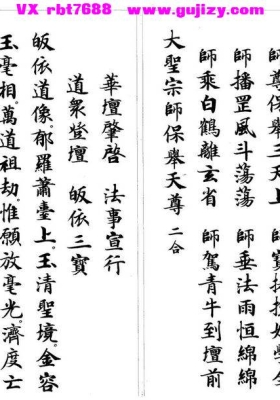 VX rbt7688 www.gujizy.com
師尊保舉三天上 師寶
師播罡風斗蕩蕩 師垂法雨恒綿綿
師乘白鶴離玄省 師駕青牛到壇前
大聖宗師保舉天尊 二合
華壇肇啓 法事宣行
道衆登壇 皈依三寶
皈依道像。郁羅蕭臺上。玉清聖境。金容
玉毫相。萬道祖劫。惟願放毫光。濟度亡